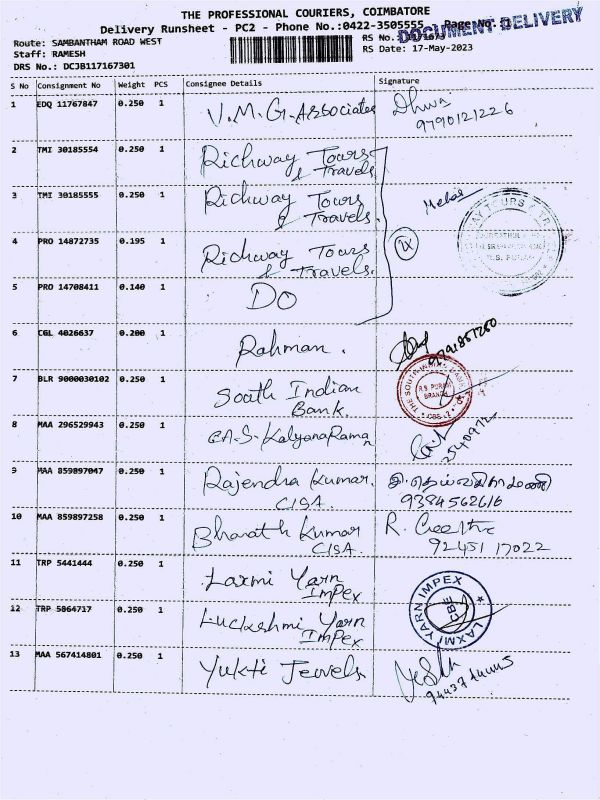 THE PROFESSIONAL COURIERS, COIMBATORE
DOCUMENT DELIVERY
Delivery Runsheet - PC2 - Phone No.:0422-3505555 Page No.:
Route: SAMBANTHAM ROAD WEST RS No.:
Staff: RAMESH RS Date: 17-May-2023
DRS No.: DCJB117167301
S No Consignment No Weight PCS Consignee Details Signature
1 EDQ 11767847 0.250 1 V.M.G. Associates
9790121226
2 TMI 30185554 0.250 1 Richway Tours
& Travels
3 TMI 30185555 0.250 1 Richway Tours
& Travels.
4 PRO 14872735 0.195 1 Richway Tours
& Travels.
R.S. PURAM
5 PRO 14708411 0.140 1 DO
6 CGL 4026637 0.200 1 Rahman.
7 BLR 9000030102 0.250 1 South Indian
Bank.
THE SOUTH INDIAN BANK
R.S. PURAM
BRANCH
8 MAA 296529943 0.250 1 CA-S-KalyanaRaman
9 MAA 859897047 0.250 1 Rajendra Kumar.
CISA.
9384562616
10 MAA 859897258 0.250 1 Bharath Kumar
CISA
92451 17022
11 TRP 5441444 0.250 1 Laxmi Yarn
Impex
LAXMI YARN IMPEX
CBE
12 TRP 5864717 0.250 1 Luckshmi Yarn
Impex
13 MAA 567414801 0.250 1 Yukti Jewels